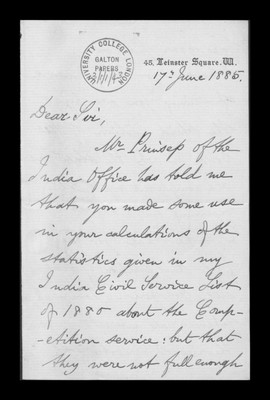 UNIVERSITY COLLEGE LONDON
GALTON
PAPERS
45, Leinster Square. W.
17th June 1885.
Dear Sir,
Mr Prinsep of the
India Office has told me
that you made some use
in your calculations of the
statistics given in my
India Civil Service List
of 1880 about the Comp-
-etition service: but that
they were not full enough